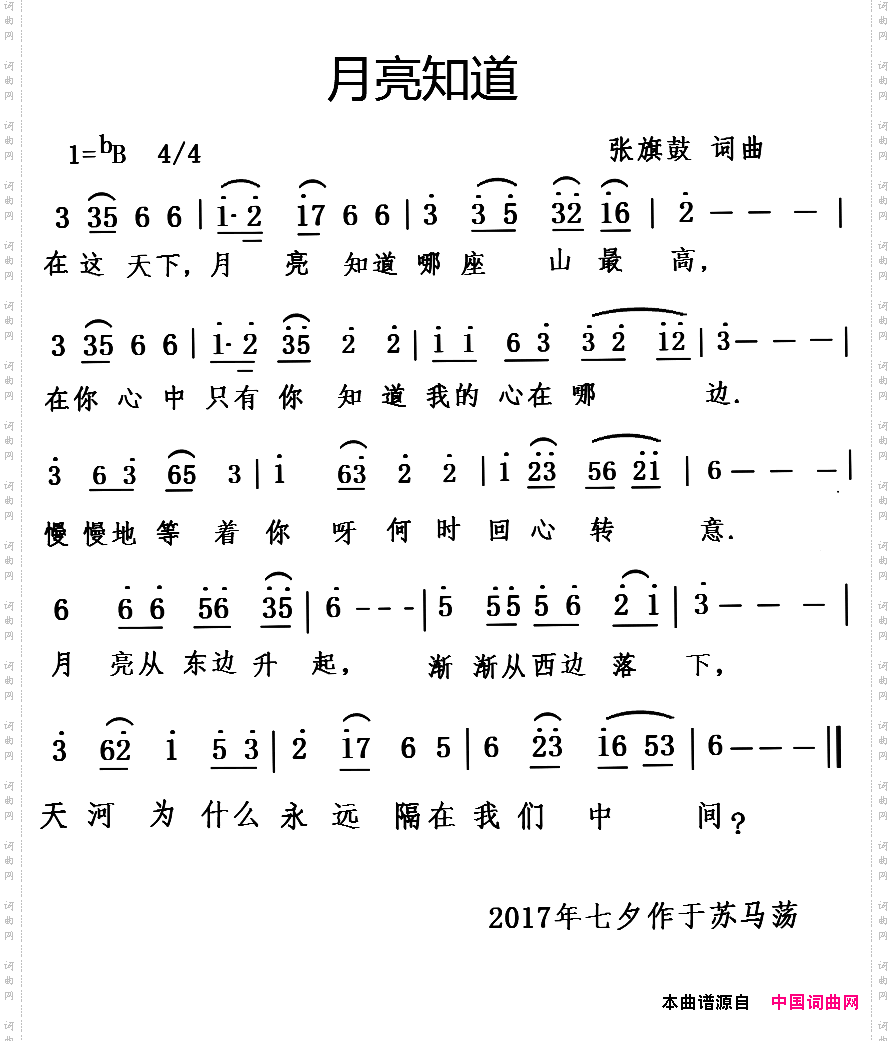 月亮知道
1=bB 4/4 张旗鼓 词曲
3 35 6 6 | 1· 2 17 6 6 | 3 3 5 32 16 | 2 — — — |
在这天下,月亮知道哪座山最高,
3 35 6 6 | 1· 2 35 2 2 | 1 1 6 3 3 2 12 | 3 — — — |
在你心中只有你知道我的心在哪边.
3 6 3 65 3 | 1 63 2 2 | 1 23 56 21 | 6 — — — |
慢慢地等着你呀何时回心转意.
6 6 6 56 35 | 6 - - - | 5 55 5 6 2 1 | 3 — — — |
月亮从东边升起,渐渐从西边落下,
3 62 1 5 3 | 2 17 6 5 | 6 23 16 53 | 6 — — — ||
天河为什么永远隔在我们中间?
2017年七夕作于苏马荡
本曲谱源自 中国词曲网
词曲网